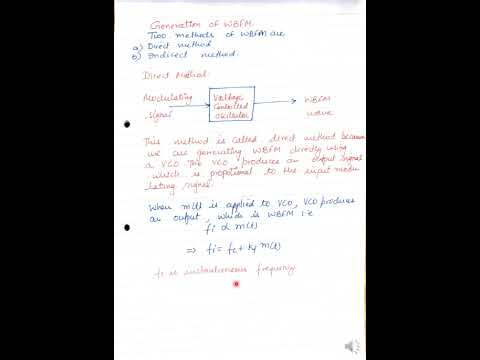 Generation of WBFM
Two methods of WBFM are
a) Direct method
b) Indirect method.
Direct Method
Modulating signal
Voltage Controlled Oscillator
WBFM wave
This method is called direct method because
we are generating WBFM directly using
a VCO. The VCO produces an output signal
which is propotional to the input modu
lating signal.
When m(t) is applied to VCO, VCO produces
an output, which is WBFM i.e
fi α m(t)
⇒ fi = fc + kf m(t)
fi is instantaneous frequency